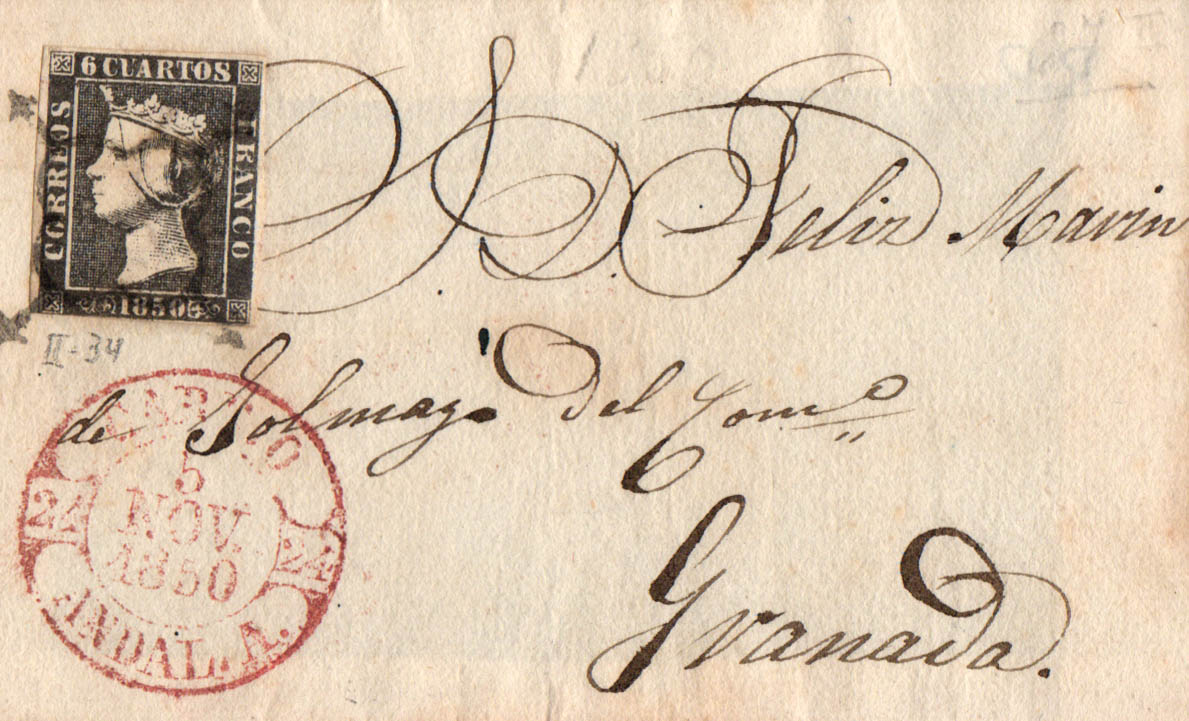 6 CUARTOS
CORREOS
FRANCO
1850
II-34
S. D. Feliz Marin
de del Comº
Granada.
5
NOV
1850
24 24
ANDAL. A.